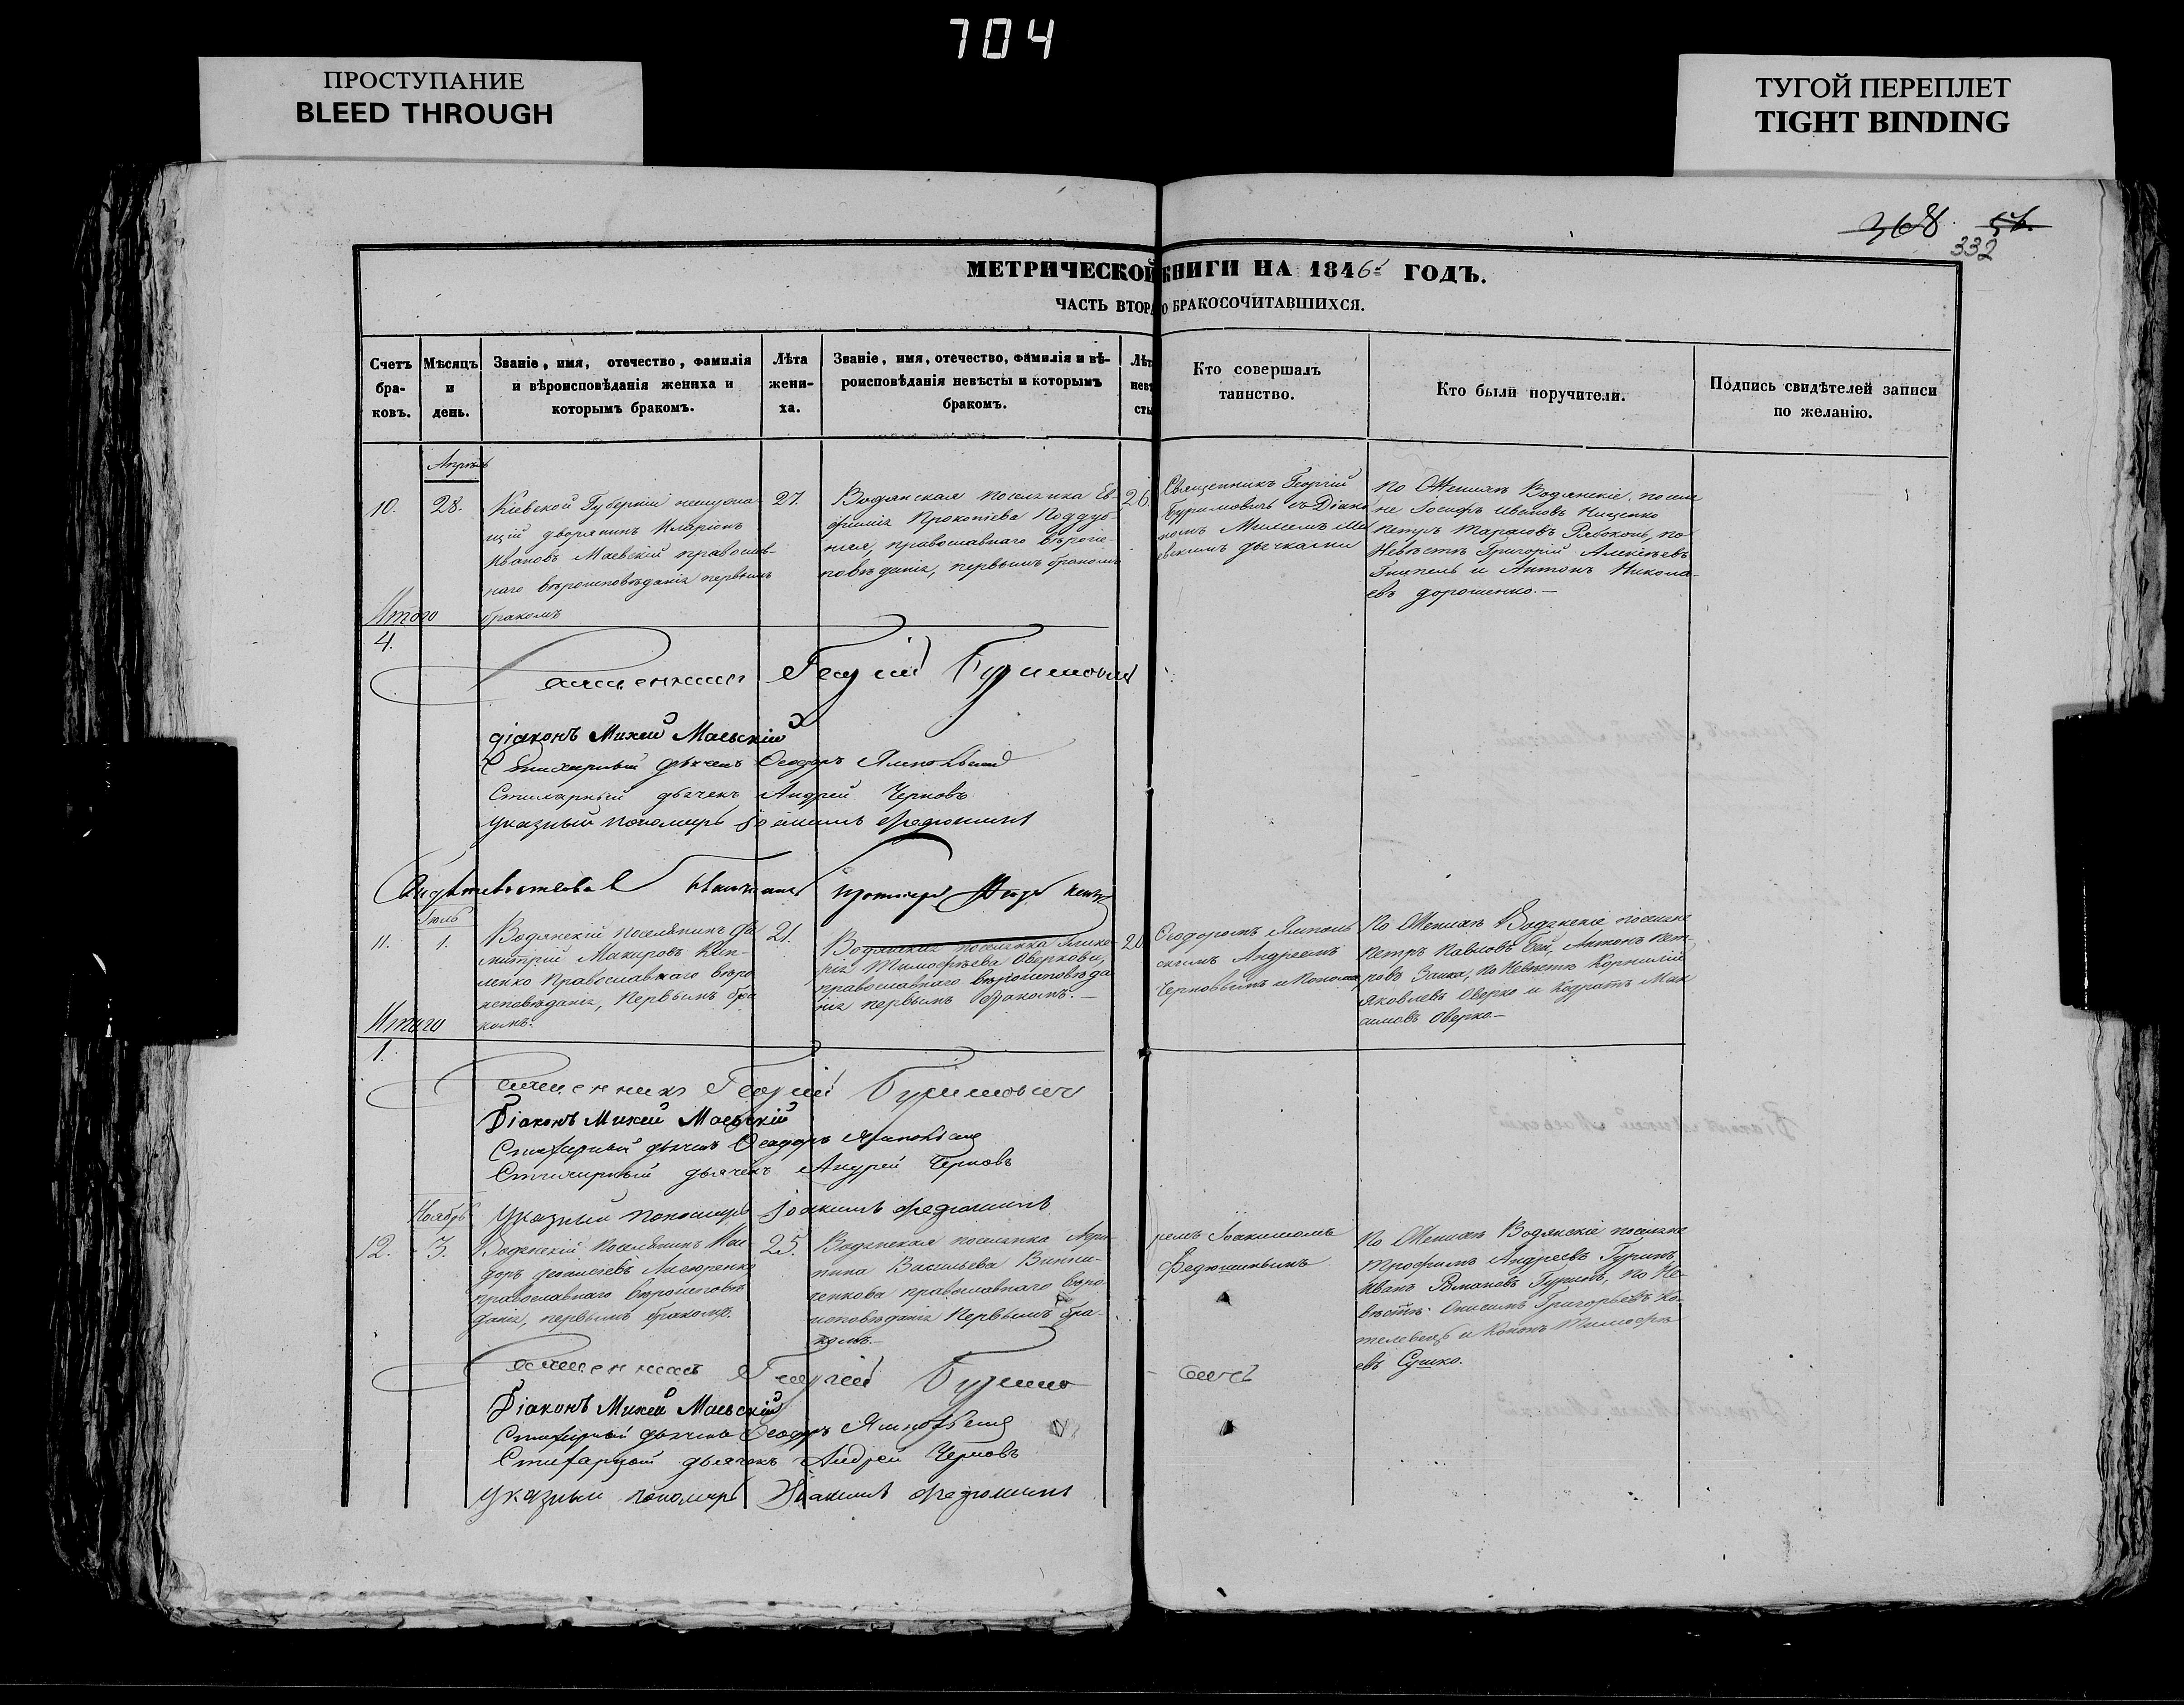 704
ПРОСТУПАНИЕ
BLEED THROUGH
ТУГОЙ ПЕРЕПЛЕТ
TIGHT BINDING
368
332
МЕТРИЧЕСКОЙ КНИГИ НА 1846й ГОДЪ.
ЧАСТЬ ВТОРА О БРАКОСОЧИТАВШИХСЯ.
Счетъ бра-ковъ.
Мѣсяцъ и день.
Званіе, имя, отечество, фамилія и вѣроисповѣданія жениха и которымъ бракомъ.
Лѣта жени-ха.
Званіе, имя, отечество, фамилія и вѣ-роисповѣданія невѣсты и которымъ бракомъ.
Лѣт невѣ сты
Кто совершалъ таинство.
Кто были поручители.
Подпись свидѣтелей записи по желанію.
Апрѣль
10.
28.
Кіевской Губерніи
дворянинъ Иларіонъ
Ивановъ Маевскій православ-
наго вѣроисповѣданія первымъ
бракомъ
27.
Водянская поселянка Ев-
фимія Прокопіева Поддуб-
ная, православнаго вѣроис-
повѣданія, первымъ бракомъ
26.
Священникъ Георгій
Буримовичъ съ Діако
номъ Михеемъ Ма
евскимъ дьячками
По Женихѣ Водянскіе поселя
не Іосифъ Ивановъ Нищенко
Петръ Тарасовъ Рябоконь, по
Невѣстѣ Григорій Алексѣевъ
и Антонъ Никола-
евъ дорошенко.—
Итого
4.
Священникъ Георгій Буримовичъ
діаконъ Михей Маевскій
Стихарный дьячекъ Ѳеодоръ Ямпольскій
Стихарный дьячекъ Андрей Черновъ
Указный пономарь Іоакимъ Федюшинъ
Свидѣтельствовалъ
Іюль
11.
1.
Водянскій поселянинъ Ди
митрій Макаровъ
Православнаго вѣро
исповѣданія, Первымъ бра
комъ.
21.
Водянская поселянка Глике-
рія Тимофѣева Оверкова,
православнаго вѣроисповѣда
нія первымъ бракомъ.—
20
Ѳеодоромъ Ямполь
скимъ Андреемъ
Черновымъ и Понома
По Женихѣ Водянскіе поселяне
Петръ Павловъ Бей, Антонъ Пет-
ровъ Заика, по Невѣстѣ Корнилій
Яковлевъ Оверко и Кодратъ Мак
симовъ Оверко.—
Итого
1.
Священникъ Георгій Буримовичъ
Діаконъ Михей Маевскій
Стихарный дьячекъ Ѳеодоръ Ямпольскій
Стихарный дьячекъ Андрей Черновъ
Указный пономарь Іоакимъ Федюшинъ
Ноябрь
12.
3.
Водянскій Поселянинъ
православнаго вѣроисповѣ
данія, первымъ бракомъ.
25.
Водянская поселянка Агри-
пина Васильева Винни-
ченкова православнаго вѣро
исповѣданія Первымъ бра-
комъ.—
ремъ Іоакимомъ
Федюшинымъ
По Женихѣ Водянскіе поселяне
Трофимъ Андреевъ Гуринъ,
Иванъ Романовъ Гуринъ, по Не-
вѣстѣ Онисимъ Григорьевъ Ко-
телевецъ и Кононъ Тимофѣ-
евъ Сушко.
Священникъ Георгій Буримо
вичъ
Діаконъ Михей Маевскій
Стихарный дьячекъ Ѳеодоръ Ямпольскій
Стихарный дьячекъ Андрей Черновъ
Указный пономарь Іоакимъ Федюшинъ